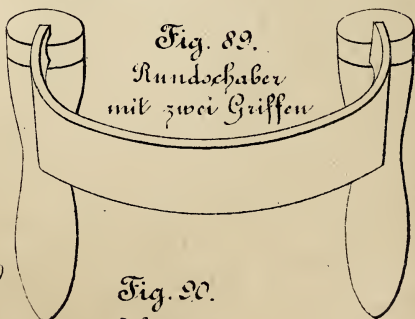 Fig. 89.
Rundschaber
mit zwei Griffen
Fig. 90.